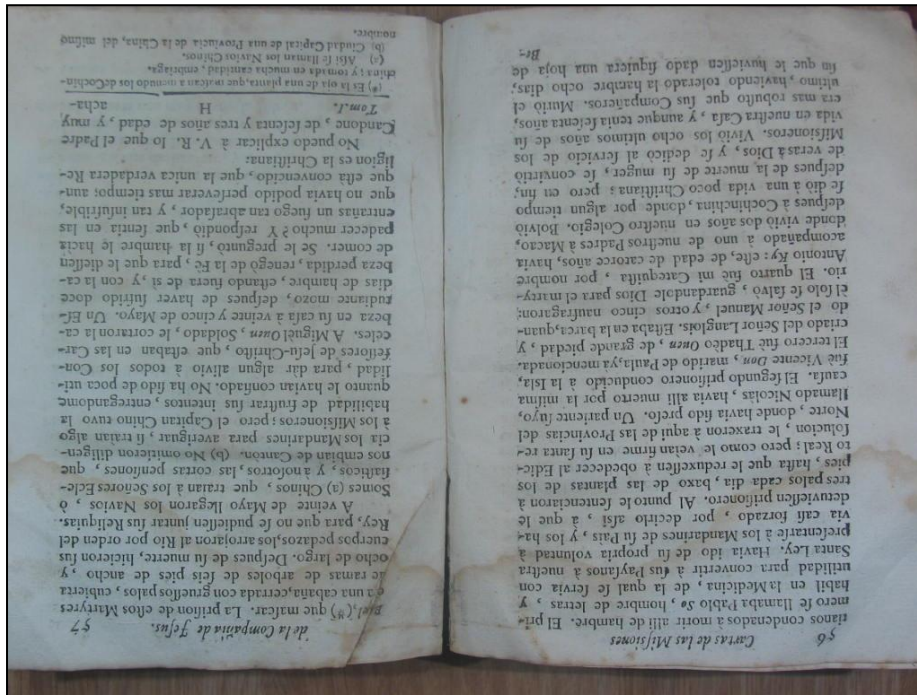 56 Cartas de las Miſſiones
rianos condenados à morir alli de hambre. El pri-
mero ſe llamada Pablo So, hombre de letras, y
habil en la Medicina, de la qual ſe ſervia con
utilidad para convertir à ſus Payſanos à nueſtra
Santa Ley. Havia ido de ſu propria voluntad à
preſentarſe à los Mandarines de ſu Pais, y los ha-
via caſi forzado, por decirlo aſsi, à que le
detuvieſſen priſionero. Al punto le ſentenciaron à
tres palos cada dia, baxo de las plantas de los
pies, haſta que le reduxeſſen à obedecer al Edic-
to Real; pero como le veìan firme en ſu ſanta re-
ſolucion, le traxeron à aqui de las Provincias del
Norte, donde havia ſido preſo. Un pariente ſuyo,
llamado Nicolàs, havia alli muerto por la miſma
cauſa. El ſegundo priſionero conducido à la Isla,
fue Vicente Don, marido de Paula, yà mencionada.
El tercero fuè Thadèo Ouen, de grande piedad, y
criado del Señor Langlois. Eſtaba en la barca, quan-
do el Señor Manuel, y otros cinco naufragaron;
èl ſolo ſe ſalvò, guardandole Dios para el marty-
rio. El quarto fuè mi Catequiſta, por nombre
Antonio Ky: eſte, de edad de catorce años, havia
acompañado à uno de nueſtros Padres à Macao,
donde vivió dos años en nueſtro Colegio. Bolviò
deſpues à Cochinchina, donde por algun tiempo
ſe diò à una vida poco Chriſtiana; pero en fin,
deſpues de la muerte de ſu muger, ſe convirtiò
de veras à Dios, y ſe dedicò al ſervicio de los
Miſsioneros. Viviò los ocho ultimos años de ſu
vida en nueſtra Caſa, y aunque tenia ſeſenta años,
era mas robuſto que ſus Compañeros. Muriò el
ultimo, haviendo tolerado la hambre ocho dias;
ſin que le huvieſſen dado ſiquiera una hoja de
Be-
de la Compañia de Jeſus. 57
Betel, (*) que maſcar. La priſion de eſtos Martyres
era una cabaña, cerrada con grueſſos palos, cubierta
de ramas de arboles de ſeis pies de ancho, y
ocho de largo. Deſpues de ſu muerte, hicieron ſus
cuerpos pedazos, los arrojaron al Rio por orden del
Rey, para que no ſe pudieſſen juntar ſus Reliquias.
A veinte de Mayo llegaron los Navios, ò
Somes (a) Chinos, que traìan à los Señores Ecle-
ſiaſticos, y à noſotros, las cortas penſiones, que
nos embian de Cantòn. (b) No omitieron diligen-
cia los Mandarines para averiguar, ſi traìan algo
à los Miſsioneros; pero el Capitan Chino tuvo la
habilidad de fruſtrar ſus intentos, entregandome
quanto le havian confiado. No ha ſido de poca uti-
lidad, para dàr algun alivio à todos los Con-
feſſores de Jeſu-Chriſto, que eſtaban en las Car-
celes. A Miguèl Ouen, Soldado, le cortaron la ca-
beza en ſu caſa à veinte y cinco de Mayo. Un Eſ-
tudiante mozo, deſpues de haver ſufrido doce
dias de hambre, eſtando fuera de sì, y con la ca-
beza perdida, renegò de la Fè, para que le dieſſen
de comer. Se le preguntò, ſi la hambre le hacia
padecer mucho? Y reſpondiò, que ſentia en las
entrañas un fuego tan abraſador, y tan inſufrible,
que no havia podido perſeverar mas tiempo; aun-
que eſta convencido, que la unica verdadera Re-
ligion es la Chriſtiana:
No puedo explicar à V. R. lo que el Padre
Candone, de ſeſenta y tres años de edad, y muy
Tom. I. H acha-
(*) Es la oja de una planta, que maſcan à menudo los de Cochin-
china; y tomada en mucha cantidad, embriaga.
(a) Aſsi ſe llaman los Navios Chinos.
(b) Ciudad Capital de una Provincia de la China, del miſmo
nombre.